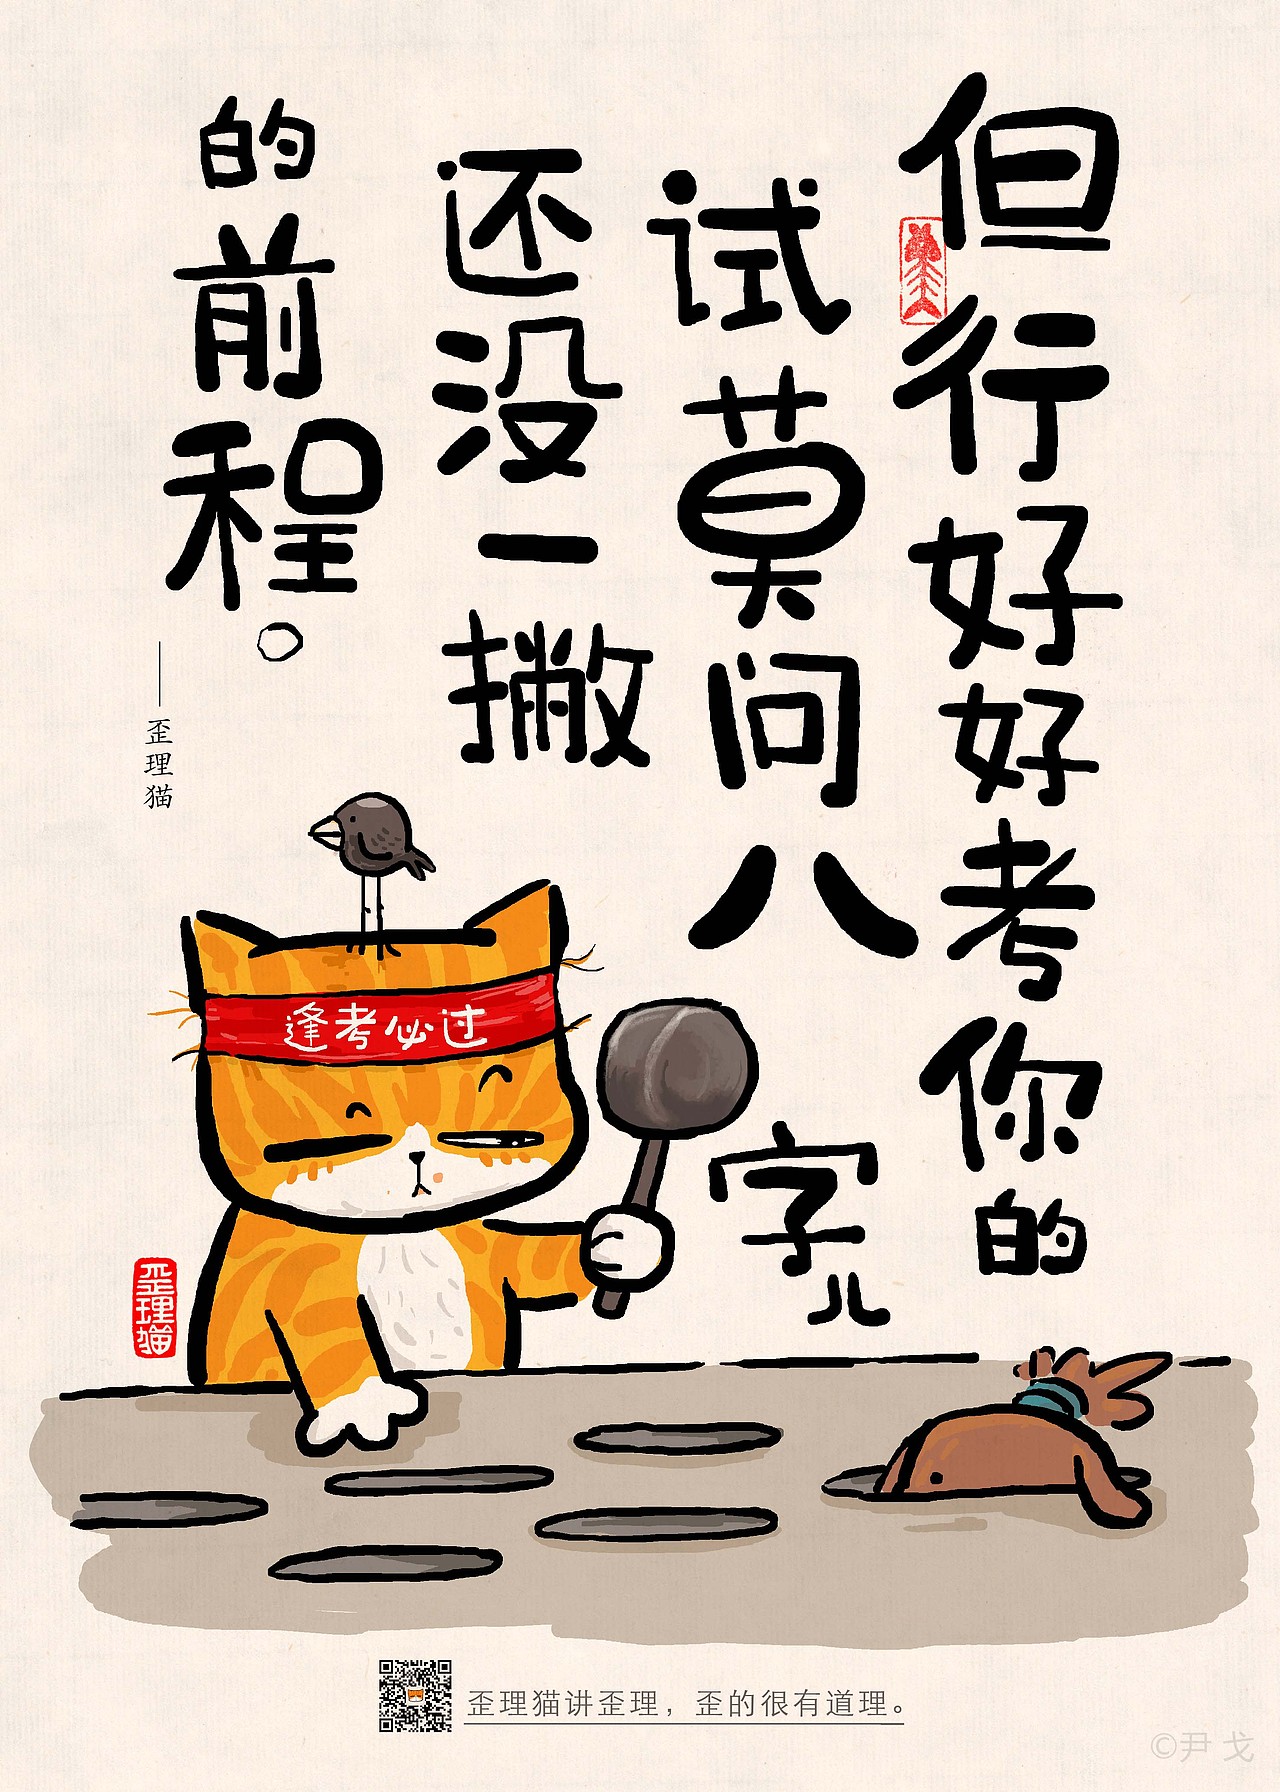 但行好好考你的
试莫问八字儿
还没一撇
的前程。
——歪理猫
逢考必过
歪理猫
歪理猫讲歪理，歪的很有道理。
©尹戈